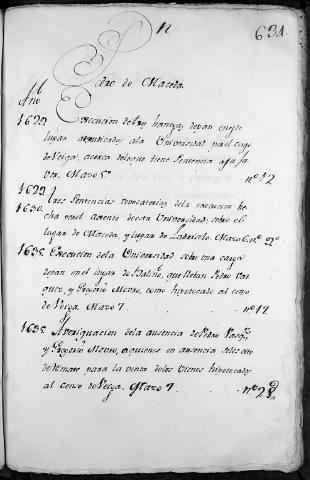 n
634.
Pedro de Maceda.
Año
1622 Execucion de tres hanegas de pan en este
lugar adjudicadas ala Universidad para el cargo
de Veiga, acerca de lo que tiene Sentencia a su fa
vor. Mazo 5º nº 12
1622 tres Sentencias revocatorias dela execucion he
1630 cha por el agente desta Universidad, sobre el
lugar de Maceda, y lugar de Mazo 6. nº 2º
1635 Execucion dela Universidad sobre una carga
de pan en el lugar de que llevan Pedro Vaz
quez, y Gregorio Mouro, como hipotecado al censo
de Veiga. Mazo 7. nº 12
1635 Averiguacion dela ausencia de Pedro Vazqz
y Gregorio Mouro, aquienes en ausencia seles cito
de remate para la venta delos vienes hipotecados
al censo de Veiga. Mazo 7. nº 28